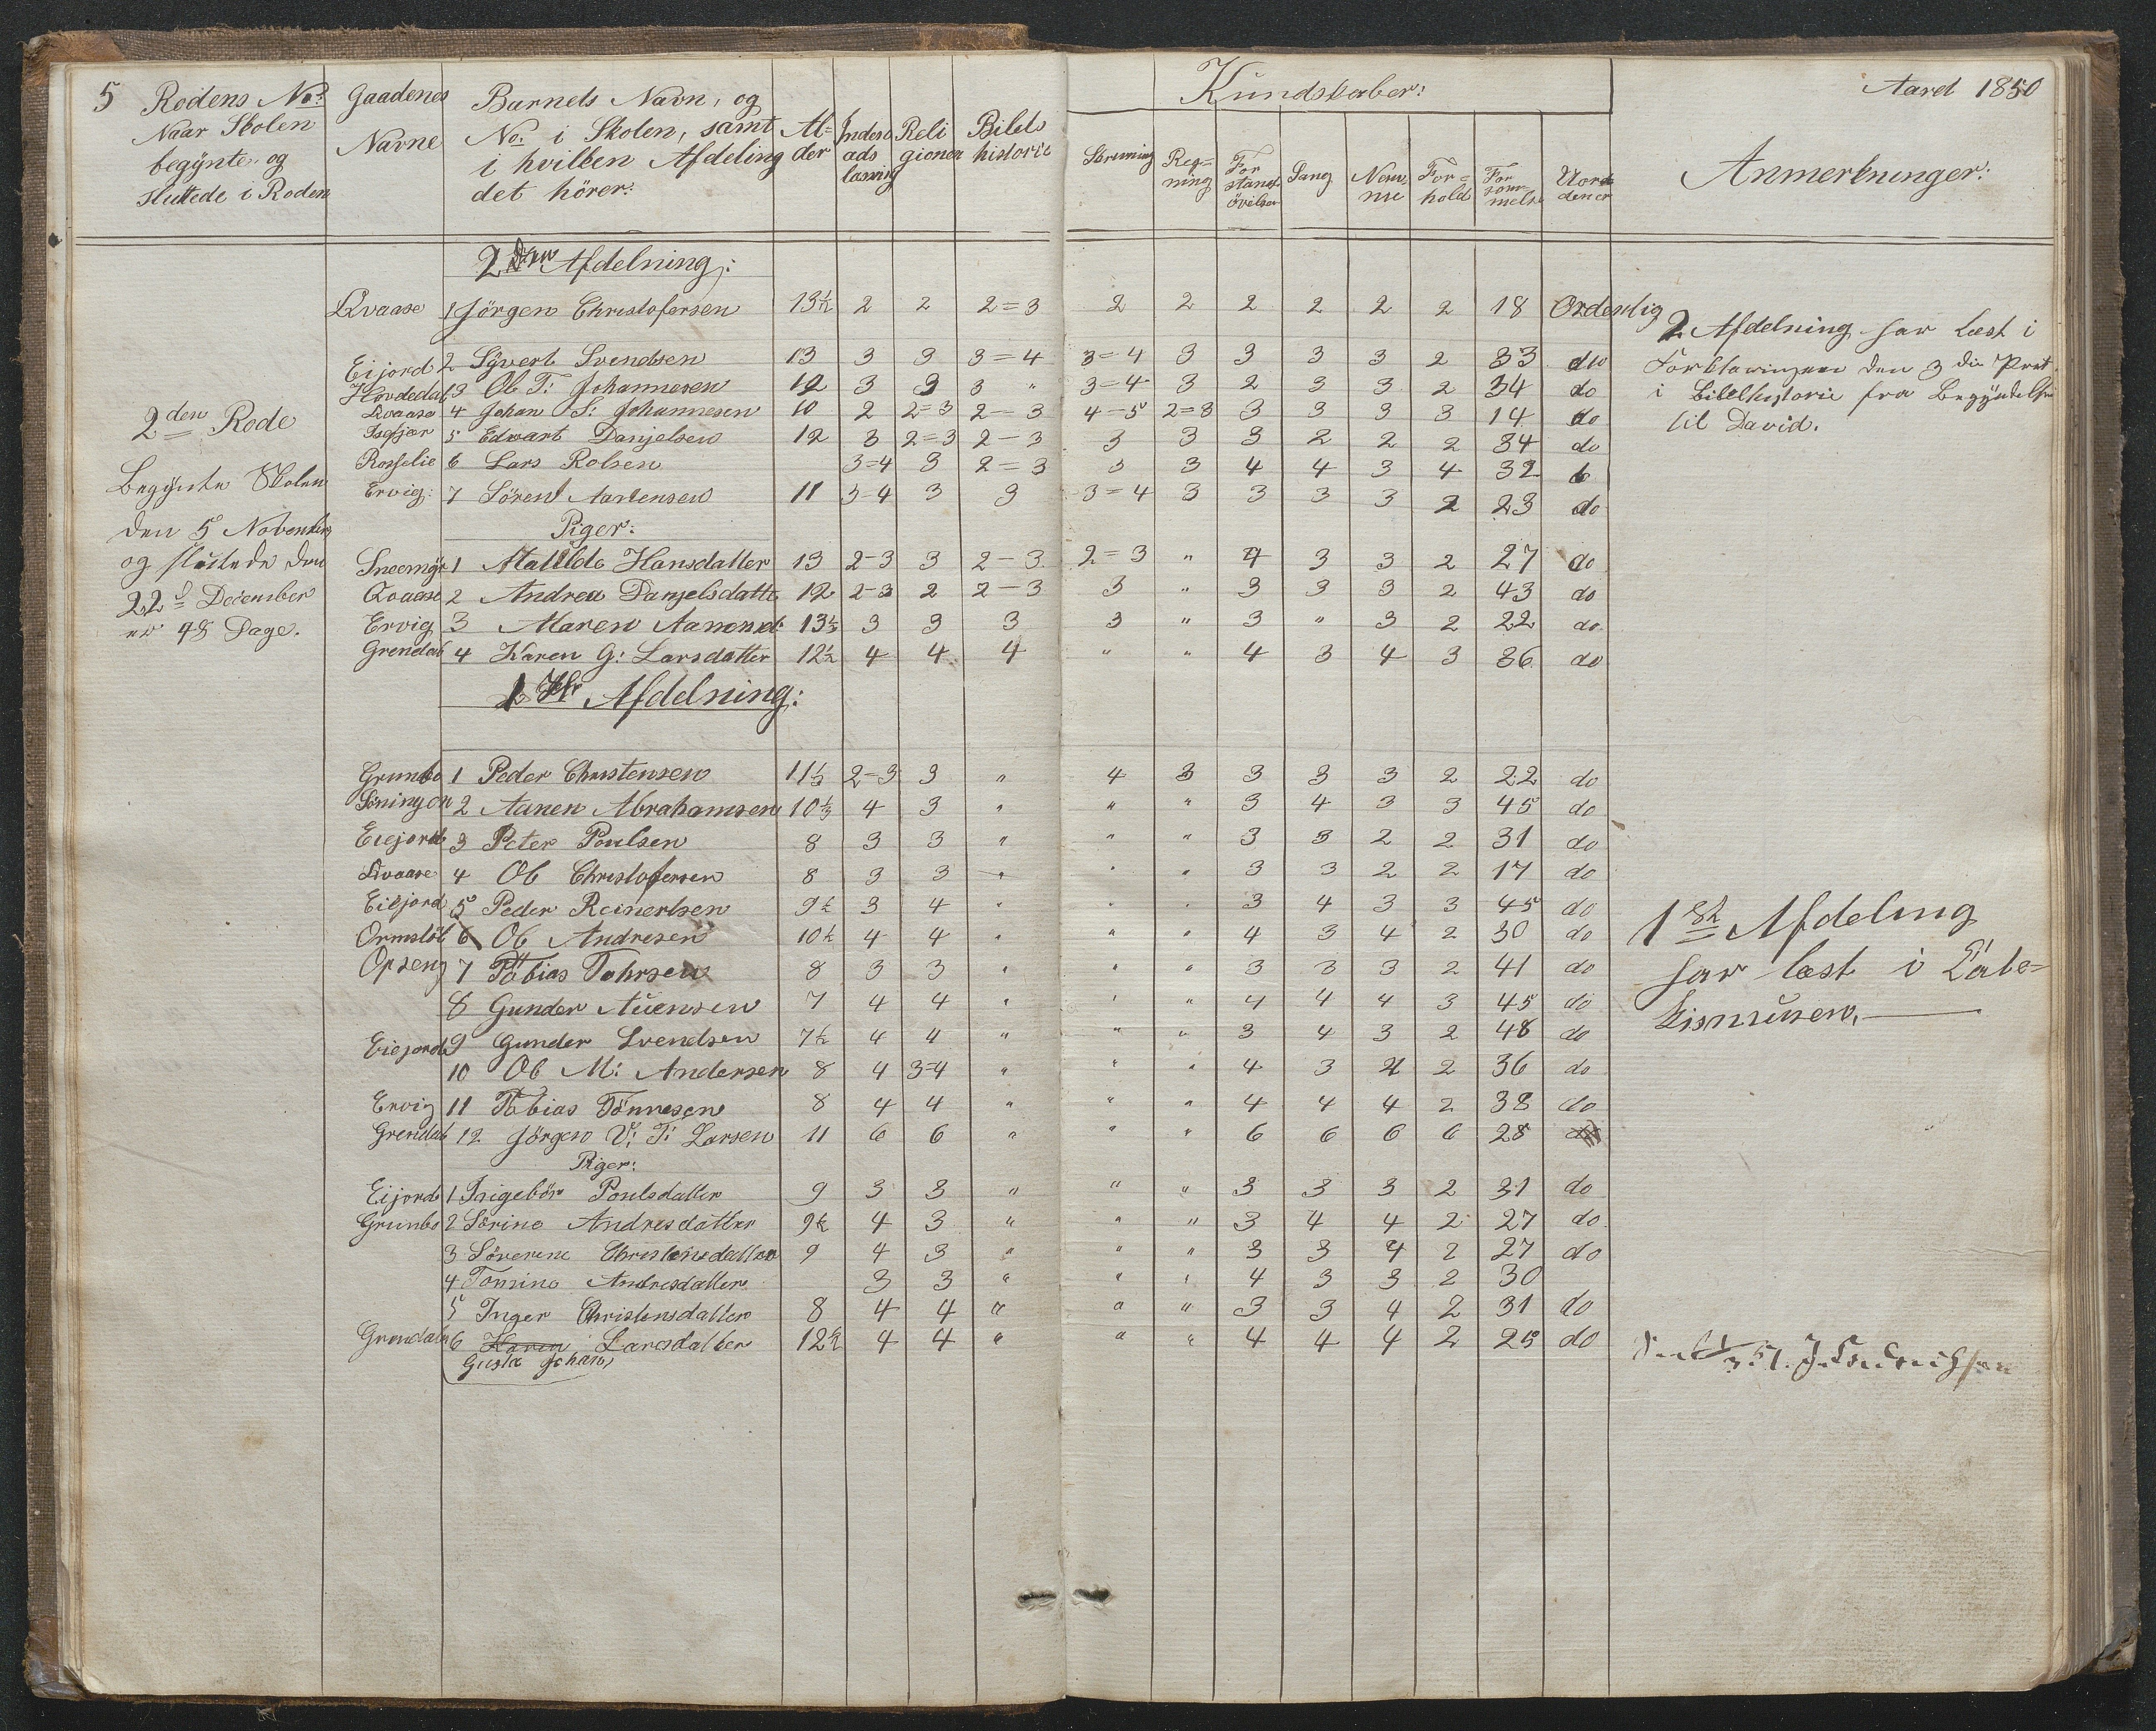 5 Rodens No: Gaadenes Barnets Navn, og Kundskaber: Aaret 1850
Naar Skolen Navne No. i Skolen, samt Al= Indenads Reli Bibels
begynte og i hvilken Afdeling der læsning gionen historie Skrivning Reg=ning Forstandsövelser Sang Nemme For=hold Forsömmelse Uordener Anmerkninger:
sluttede i Roden det hörer:
2den Afdelning:
Qvaase 1 Jörgen Christofersen 13½ 2 2 2=3 2 2 2 2 2 2 18 Ordenlig
Eijord 2 Syvert Svendsen 13 3 3 3=4 3=4 3 3 3 3 2 33 do
3 Ol T: Johannesen 12 3 3 3 " 3=4 3 2 3 3 2 34 do
Qvaase 4 Johan S: Johannesen 10 2 2=3 2-3 4-5 2=3 3 3 3 3 14 do
5 Edvart Danjelsen 12 3 2=3 2-3 3 3 3 2 2 2 34 do
Rosselie 6 Lars Rolsen 3=4 3 2=3 3 3 4 4 3 4 32
Ervig: 7 Sören Aanensen 11 3-4 3 3 3=4 3 3 3 3 2 23 do
Piger:
1 Matilde Hansdatter 13 2-3 3 2-3 2=3 " 4 3 3 2 27 do
Qvaase 2 Andrea Danjelsdatte 12 2-3 2 2-3 3 " 3 3 3 2 43 do
Ervig 3 Maren 13½ 3 3 3 3 " 3 " 3 2 22 do
Grendal 4 Karen G: Larsdatter 12½ 4 4 4 " " 4 3 4 3 36 do
2den Rode
Begynte Skolen
den 5 November
og sluttede den
22 December
er 48 Dage.
2 Afdelning har læst i
Forklaringen den 3die Part
i Bibelhistorie fra Begyndelse
til David.
1ste Afdelning:
Grunbo 1 Peder Christensen 11⅓ 2-3 3 " 4 3 3 3 3 2 22 do
2 Aanen Abrahamsen 10⅓ 4 3 " " " 3 4 3 3 45 do
Eiejord 3 Peter Poulsen 8 3 3 " " " 3 3 2 2 31 do
Qvaase 4 Ol Christofersen 8 3 3 " " " 3 3 2 2 17 do
Eiejord 5 Peder Reinertsen 9½ 3 4 " " " 3 4 3 3 45 do
Ormslöb 6 Ol Andresen 10½ 4 4 " " " 4 3 4 2 30 do
Opseng 7 Tobias Tahrsen 8 3 3 " " " 3 3 3 2 41 do
8 Gunder Auensen 7 4 4 " " " 4 4 4 3 45 do
Eiejord 9 Gunder Svendsen 7½ 4 4 " " " 3 4 3 2 48 do
10 Ol M: Andersen 8 4 3=4 " " " 4 3 4 2 36 do
Ervig 11 Tobias Tönnesen 8 4 4 " " " 4 4 4 2 38 do
Grendal 12 Jörgen V: T: Larsen 11 6 6 " " " 6 6 6 6 28
Piger:
Eijord 1 Ingebör Poulsdatter 9 3 3 " " " 3 3 3 2 31 do
Grunbo 2 Sörine Andresdatter 9½ 4 3 " " " 3 4 4 2 27 do
3 Söverine Christensdatter 9 4 3 " " " 3 3 4 2 27 do
4 Tomine Andresdatter 3 3 " " " 4 3 3 2 30
5 Inger Christensdatter 8 4 4 " " " 3 3 4 2 31 do
Grendalen 6 Karen Larsdatter 12½ 4 4 " " " 4 4 4 2 25 do
Gusta Johan
1ste Afdeling
har læst i Cate=
kismusen.